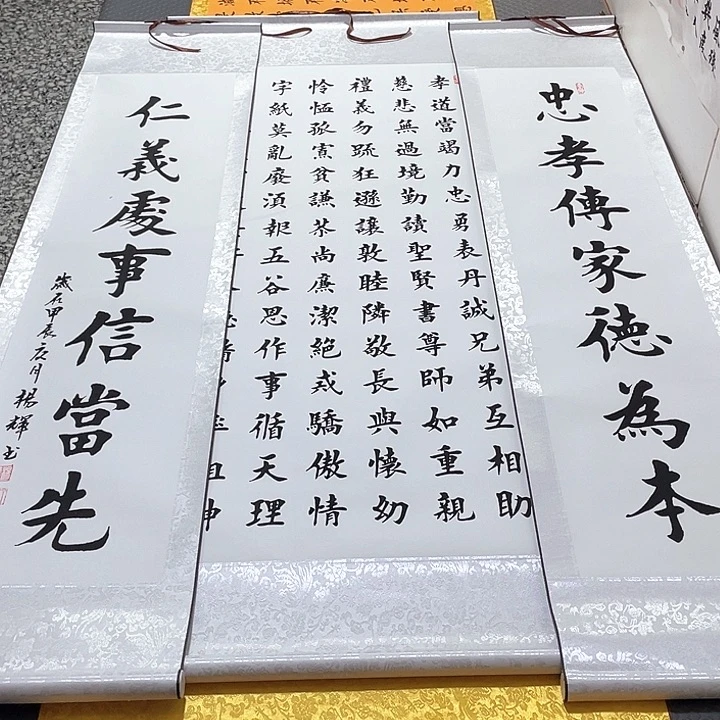 忠孝傳家德為本
孝道當竭力忠勇表丹誠兄弟互相助
慈悲無過境勤讀聖賢書尊師如重親
禮義勿踈狂遜讓敦睦隣敬長與懷幼
怜恤孤寡貧謙恭尚廉潔絕戒驕傲情
字紙莫亂廢須報五谷恩作事循天理
仁義處事信當先
歲在甲辰月楊輝书